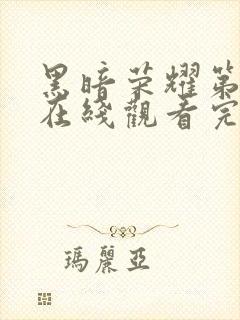 黑暗荣耀第
在綫觀看完
瑪麗亞